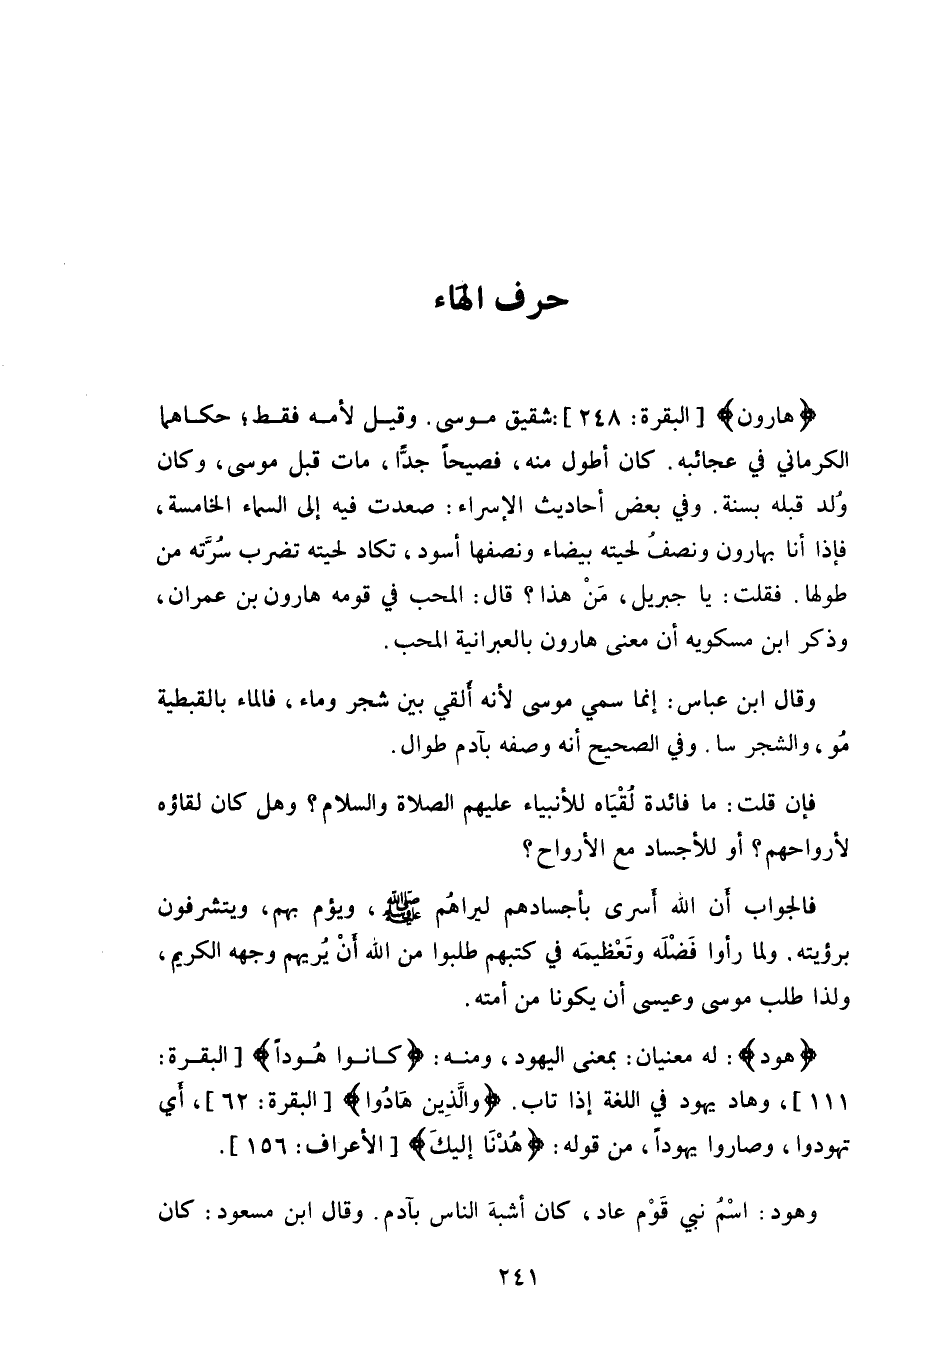 حرف الهاء
﴿هارون﴾ [ البقرة: ٢٤٨ ]:شقيق موسى. وقيل لأمه فقط؛ حكاهما
الكرماني في عجائبه. كان أطول منه، فصيحاً جدًّا، مات قبل موسى، وكان
وُلد قبله بسنة. وفي بعض أحاديث الإسراء: صعدت فيه إلى السماء الخامسة،
فإذا أنا بهارون ونصفُ لحيته بيضاء ونصفها أسود، تكاد لحيته تضرب سُرَّته من
طولها. فقلت: يا جبريل، مَنْ هذا؟ قال: المحب في قومه هارون بن عمران،
وذكر ابن مسكويه أن معنى هارون بالعبرانية المحب.
وقال ابن عباس: إنما سمي موسى لأنه أُلقي بين شجر وماء، فالماء بالقبطية
مُو، والشجر سا. وفي الصحيح أنه وصفه بآدم طوال.
فإن قلت: ما فائدة لُقْيَاه للأنبياء عليهم الصلاة والسلام؟ وهل كان لقاؤه
لأرواحهم؟ أو للأجساد مع الأرواح؟
فالجواب أن الله أسرى بأجسادهم ليراهُم ﷺ، ويؤم بهم، ويتشرفون
برؤيته. ولما رأوا فَضْلَه وتَعْظيمَه في كتبهم طلبوا من الله أنْ يُريهم وجهه الكريم،
ولذا طلب موسى وعيسى أن يكونا من أمته.
﴿هود﴾: له معنيان: بمعنى اليهود، ومنه: ﴿كانوا هُوداً﴾ [ البقرة:
١١١ ]، وهاد يهود في اللغة إذا تاب. ﴿والَّذِين هَادُوا﴾ [ البقرة: ٦٢ ]، أَي
تهودوا، وصاروا يهوداً، من قوله: ﴿هُدْنَا إليكَ﴾ [ الأعراف: ١٥٦ ].
وهود: اسْمُ نبي قَوْم عاد، كان أشبهَ الناس بآدم. وقال ابن مسعود: كان
٢٤١